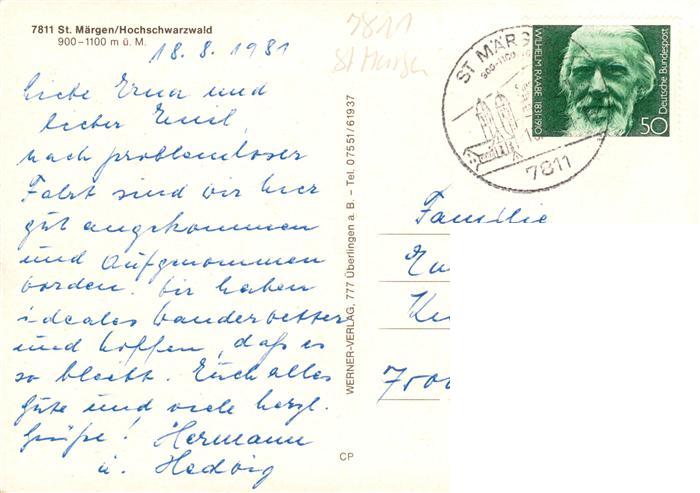 7811 St. Märgen/Hochschwarzwald
900–1100 m ü. M.
18. 8. 1981
liebe Erna und
lieber Emil,
nach problemloser
Fahrt sind wir hier
gut angekommen
und aufgenommen
worden. Wir haben
ideales Wanderwetter
und hoffen, daß es
so bleibt. Euch alles
gute und viele herzl.
Grüße! Hermann
u. Hedwig
7811
St Märgen
WERNER-VERLAG, 777 Überlingen a. B. – Tel. 07551/61937
CP
ST MÄRG
7811
WILHELM RAABE 1831-1910
Deutsche Bundespost
50
Familie